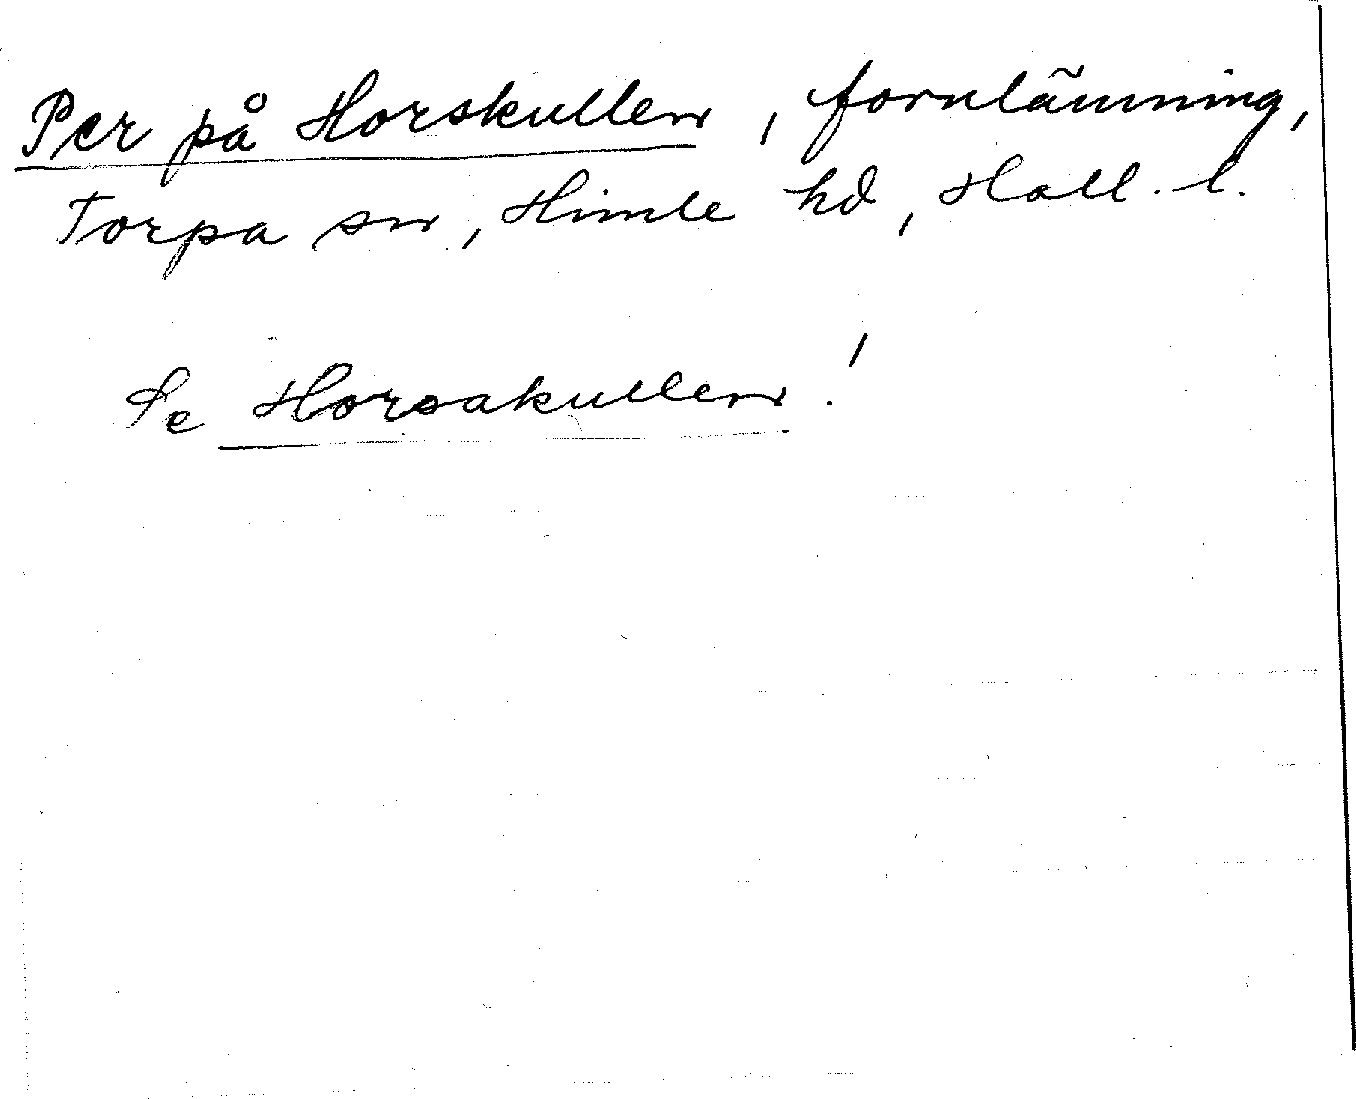 Per på Horskullen, fornlämning,
Torpa sn, Himle hd, Hall. l.
Se Horsakullen!